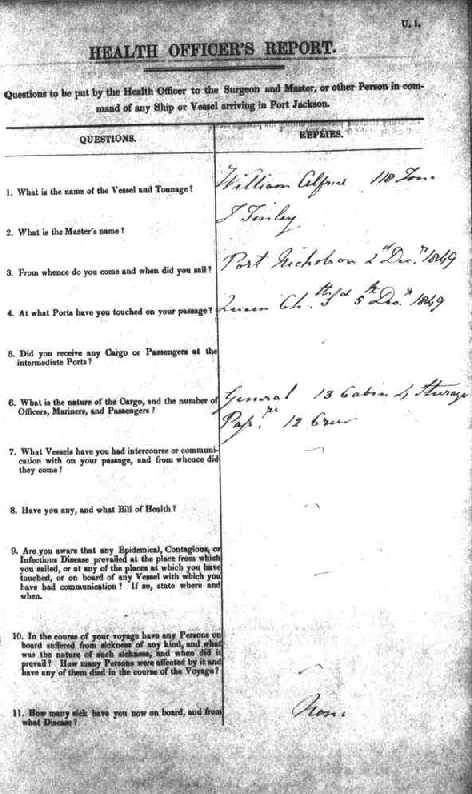 U. 1.
HEALTH OFFICER'S REPORT.
Questions to be put by the Health Officer to the Surgeon and Master, or other Person in com-
mand of any Ship or Vessel arriving in Port Jackson.
QUESTIONS.
REPLIES.
1. What is the name of the Vessel and Tonnage?
William Alfred 118 Tons
2. What is the Master's name?
J Tinley
3. From whence do you come and when did you sail?
Port Nicholson 2nd Decr. 1849
4. At what Ports have you touched on your passage?
Queen Ch. 5th Decr. 1849
5. Did you receive any Cargo or Passengers at the
intermediate Ports?
6. What is the nature of the Cargo, and the number of
Officers, Mariners, and Passengers?
General 13 Cabin 4 Steerage
Passrs. 12 Crew
7. What Vessels have you had intercourse or communi-
cation with on your passage, and from whence did
they come?
8. Have you any, and what Bill of Health?
9. Are you aware that any Epidemical, Contagious, or
Infectious Disease prevailed at the place from which
you sailed, or at any of the places at which you have
touched, or on board of any Vessel with which you
have had communication? If so, state where and
when.
10. In the course of your voyage have any Persons on
board suffered from sickness of any kind, and what
was the nature of such sickness, and when did it
prevail? How many Persons were affected by it and
have any of them died in the course of the Voyage?
11. How many sick have you now on board, and from
what Disease?
None